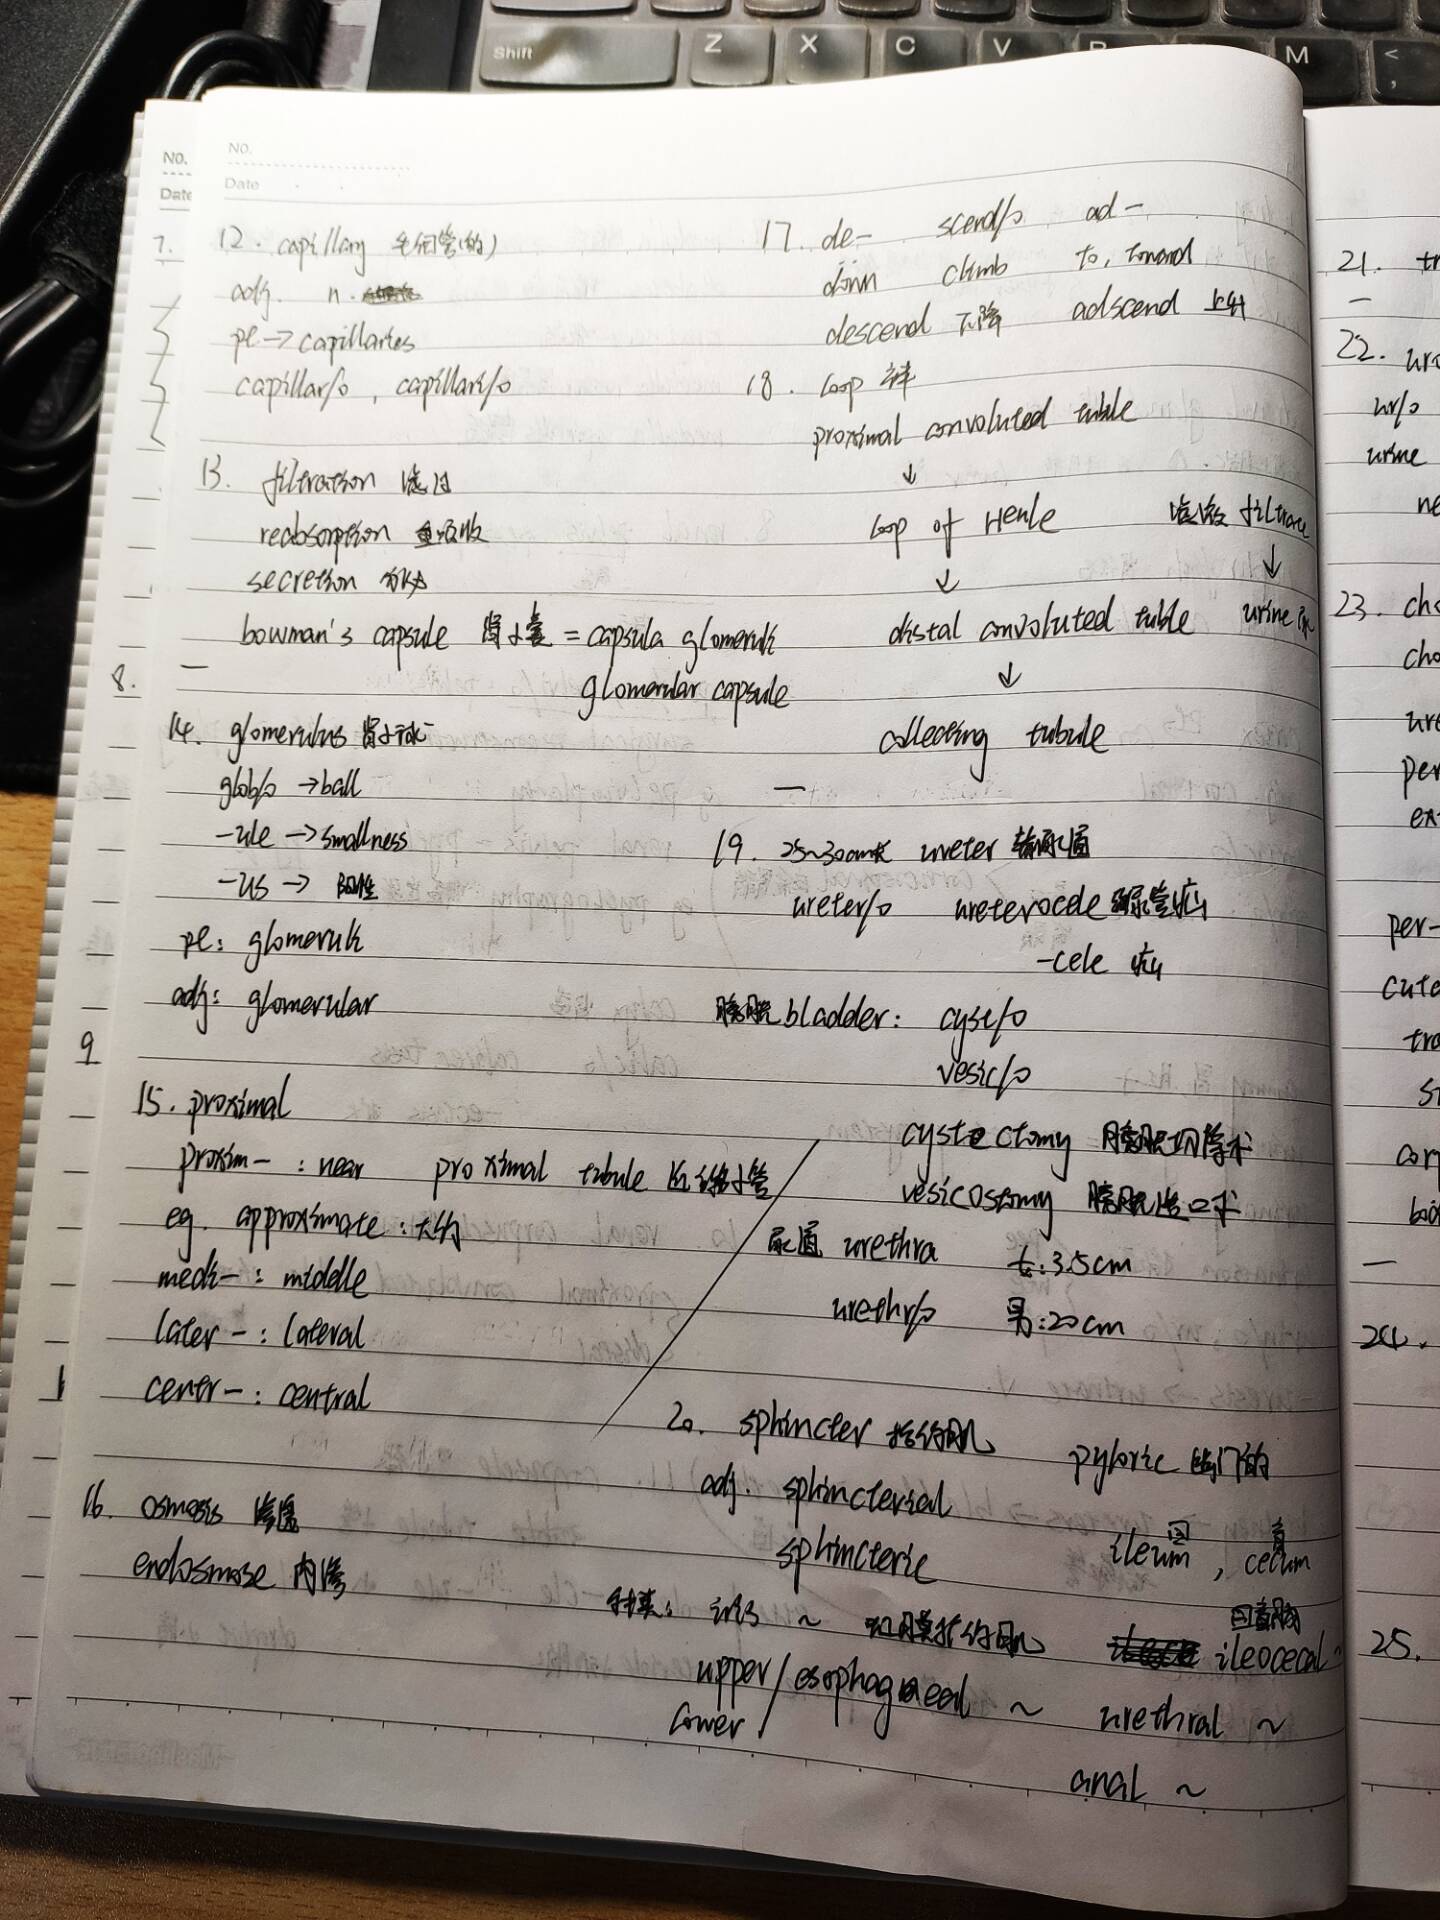 No.
Date
12. capillary 毛细管(的)
adj. n.
pl → capillaries
capillar/o , capillari/o
13. filtration 滤过
reabsorption 重吸收
secretion 分泌
bowman's capsule 肾小囊 = capsula glomeruli
glomerular capsule
14. glomerulus 肾小球
glob/o → ball
-ule → smallness
-us → 阳性
pl: glomeruli
adj: glomerular
15. proximal
proxim- : near proximal tubule 近端小管
eg. approximate : 大约
medi- : middle
later- : lateral
centr- : central
16. osmosis 渗透
endosmose 内渗
17. de- scend/o ad-
down climb to, toward
descend 下降 adscend 上升
18. loop 袢
proximal convoluted tuble
↓
loop of Henle 滤液 filtrate
↓ ↓
distal convoluted tuble urine
↓
collecting tubule
19. 25~30cm长 ureter 输尿道
ureter/o ureterocele 输尿管疝
-cele 疝
膀胱 bladder: cyst/o
vesic/o
cystectomy 膀胱切除术
vesicostomy 膀胱造口术
尿道 urethra 女:3.5cm
urethr/o 男:20cm
20. sphincter 括约肌 pyloric 幽门的
adj. sphincterial
sphincteric ileum 回, cecum 盲
种类: iris ~ 虹膜括约肌 回盲肠 ileocecal ~
upper/lower esophageal ~ urethral ~
anal ~
No.
Date
7.
8.
9
21.
22.
ur/o
urine
23.
per-
24.
25.